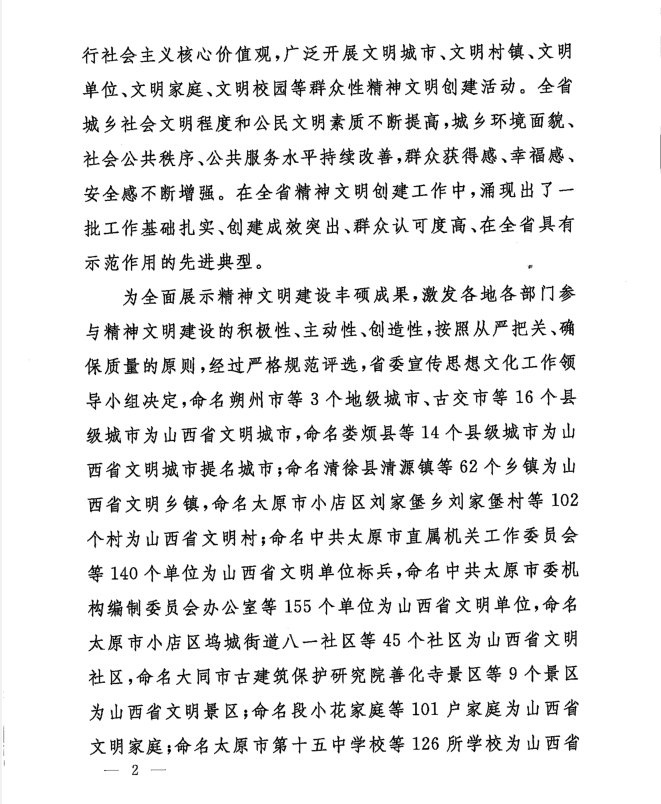 行社会主义核心价值观,广泛开展文明城市、文明村镇、文明
单位、文明家庭、文明校园等群众性精神文明创建活动。全省
城乡社会文明程度和公民文明素质不断提高,城乡环境面貌、
社会公共秩序、公共服务水平持续改善,群众获得感、幸福感、
安全感不断增强。在全省精神文明创建工作中,涌现出了一
批工作基础扎实、创建成效突出、群众认可度高、在全省具有
示范作用的先进典型。
为全面展示精神文明建设丰硕成果,激发各地各部门参
与精神文明建设的积极性、主动性、创造性,按照从严把关、确
保质量的原则,经过严格规范评选,省委宣传思想文化工作领
导小组决定,命名朔州市等 3 个地级城市、古交市等 16 个县
级城市为山西省文明城市,命名娄烦县等 14 个县级城市为山
西省文明城市提名城市;命名清徐县清源镇等 62 个乡镇为山
西省文明乡镇,命名太原市小店区刘家堡乡刘家堡村等 102
个村为山西省文明村;命名中共太原市直属机关工作委员会
等 140 个单位为山西省文明单位标兵,命名中共太原市委机
构编制委员会办公室等 155 个单位为山西省文明单位,命名
太原市小店区坞城街道八一社区等 45 个社区为山西省文明
社区,命名大同市古建筑保护研究院善化寺景区等 9 个景区
为山西省文明景区;命名段小花家庭等 101 户家庭为山西省
文明家庭;命名太原市第十五中学校等 126 所学校为山西省
— 2 —